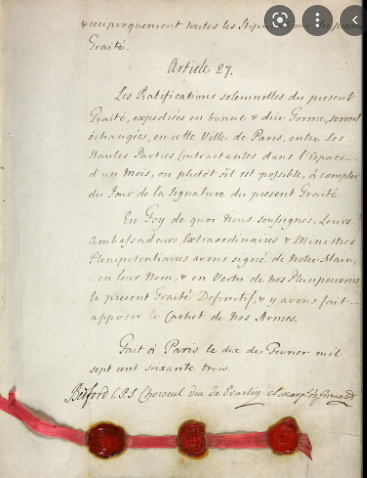 & réciproquement toutes les
Traité.
Article 27.
Les Ratifications solemnelles du present
Traité, expediées en bonne & due Forme, seront
échangées, en cette Ville de Paris, entre les
Hautes Parties Contractantes dans l'Espace
d'un Mois, ou plutôt s'il est possible, à compter
du Jour de la Signature du present Traité.
En Foy de quoi Nous soussignés Leurs
Ambassadeurs Extraordinaires & Ministres
Plenipotentiaires avons signé de Notre Main,
en leur Nom, & en Vertu de nos Pleinpouvoirs
le present Traité Definitif, & y avons fait
apposer le Cachet de nos Armes.
Fait à Paris le dix de Fevrier mil
sept cent soixante trois.
Bedford C.P.S. Choiseul duc de Praslin el marq. de Grimaldi